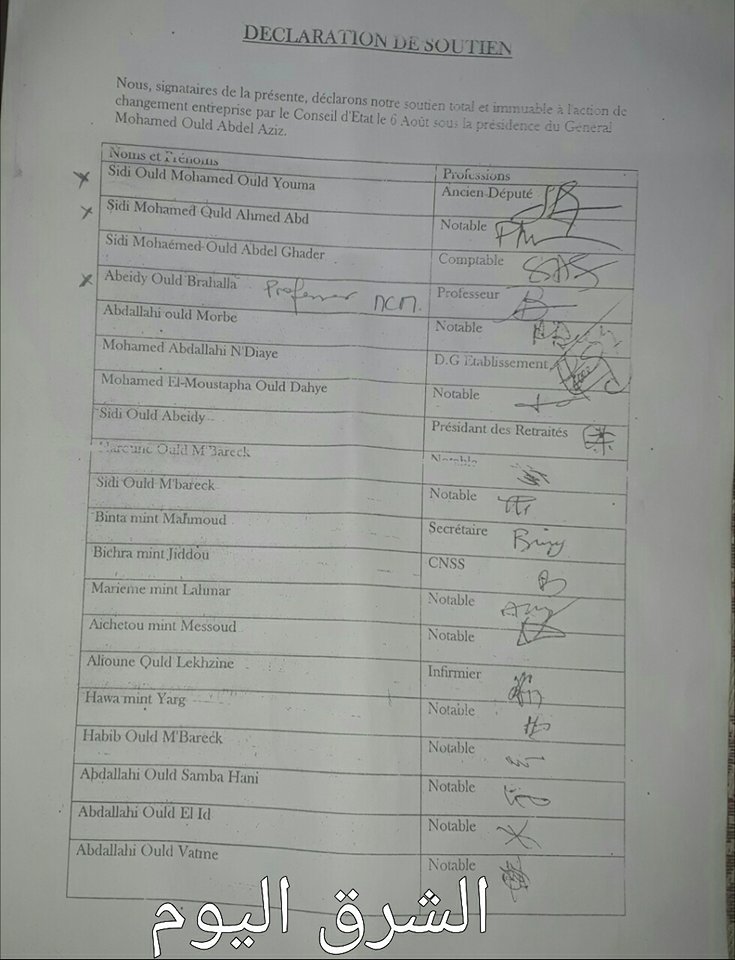 DECLARATION DE SOUTIEN
Nous, signataires de la présente, déclarons notre soutien total et immuable à l'action de
changement entreprise par le Conseil d'Etat le 6 Août sous la présidence du Général
Mohamed Ould Abdel Aziz.
Noms et Prénoms Professions
Sidi Ould Mohamed Ould Youma Ancien Député
Sidi Mohamed Ould Ahmed Abd Notable
Sidi Mohaémed Ould Abdel Ghader Comptable
Abeidy Ould Brahalla Professeur
Abdallahi ould Morbe Notable
Mohamed Abdallahi N'Diaye D.G Etablissement
Mohamed El-Moustapha Ould Dahye Notable
Sidi Ould Abeidy Présidant des Retraités
Ould M'Bareck Notable
Sidi Ould M'bareck Notable
Binta mint Mahmoud Secrétaire
Bichra mint Jiddou CNSS
Marieme mint Lahmar Notable
Aichetou mint Messoud Notable
Alioune Ould Lekhzine Infirmier
Hawa mint Yarg Notable
Habib Ould M'Bareck Notable
Abdallahi Ould Samba Hani Notable
Abdallahi Ould El Id Notable
Abdallahi Ould Vatme Notable
الشرق اليوم